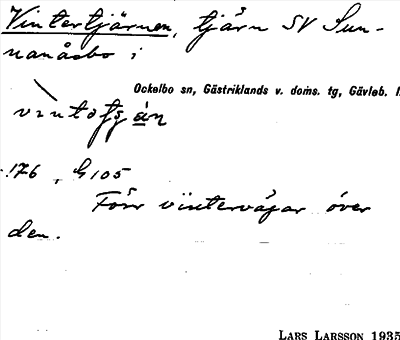 Vintertjärnen, tjärn SV Sun-
nanåsbo i
Ockelbo sn, Gästriklands v. doms. tg, Gävleb. l
176, G 105
Förr vintervägar över
den.
LARS LARSSON 1935